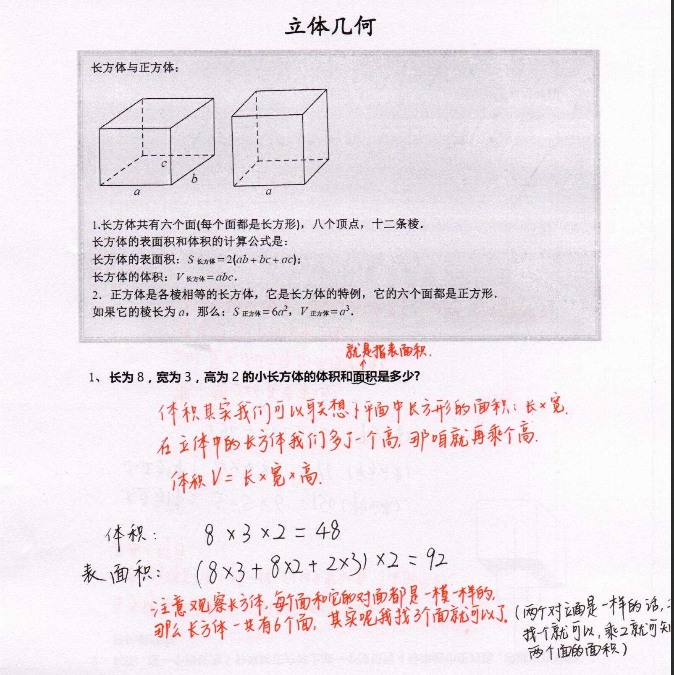 立体几何
长方体与正方体：
c
b
a
a
1.长方体共有六个面(每个面都是长方形)，八个顶点，十二条棱．
长方体的表面积和体积的计算公式是：
长方体的表面积：S 长方体=2(ab+bc+ac)；
长方体的体积：V 长方体=abc．
2．正方体是各棱相等的长方体，它是长方体的特例，它的六个面都是正方形．
如果它的棱长为 a，那么：S 正方体=6a²，V 正方体=a³．
就是指表面积．
1、长为 8，宽为 3，高为 2 的小长方体的体积和面积是多少?
体积其实我们可以联想下平面中长方形的面积：长×宽．
在立体中的长方体我们多了一个高，那咱就再乘个高．
体积 V = 长×宽×高．
体积：8×3×2=48
表面积：(8×3+8×2+2×3)×2=92
注意观察长方体，每个面和它的对面都是一模一样的，
那么长方体一共有6个面，其实呢我找3个面就可以了
(两个对立面是一样的话，
找个就可以，乘2就可知
两个面的面积)